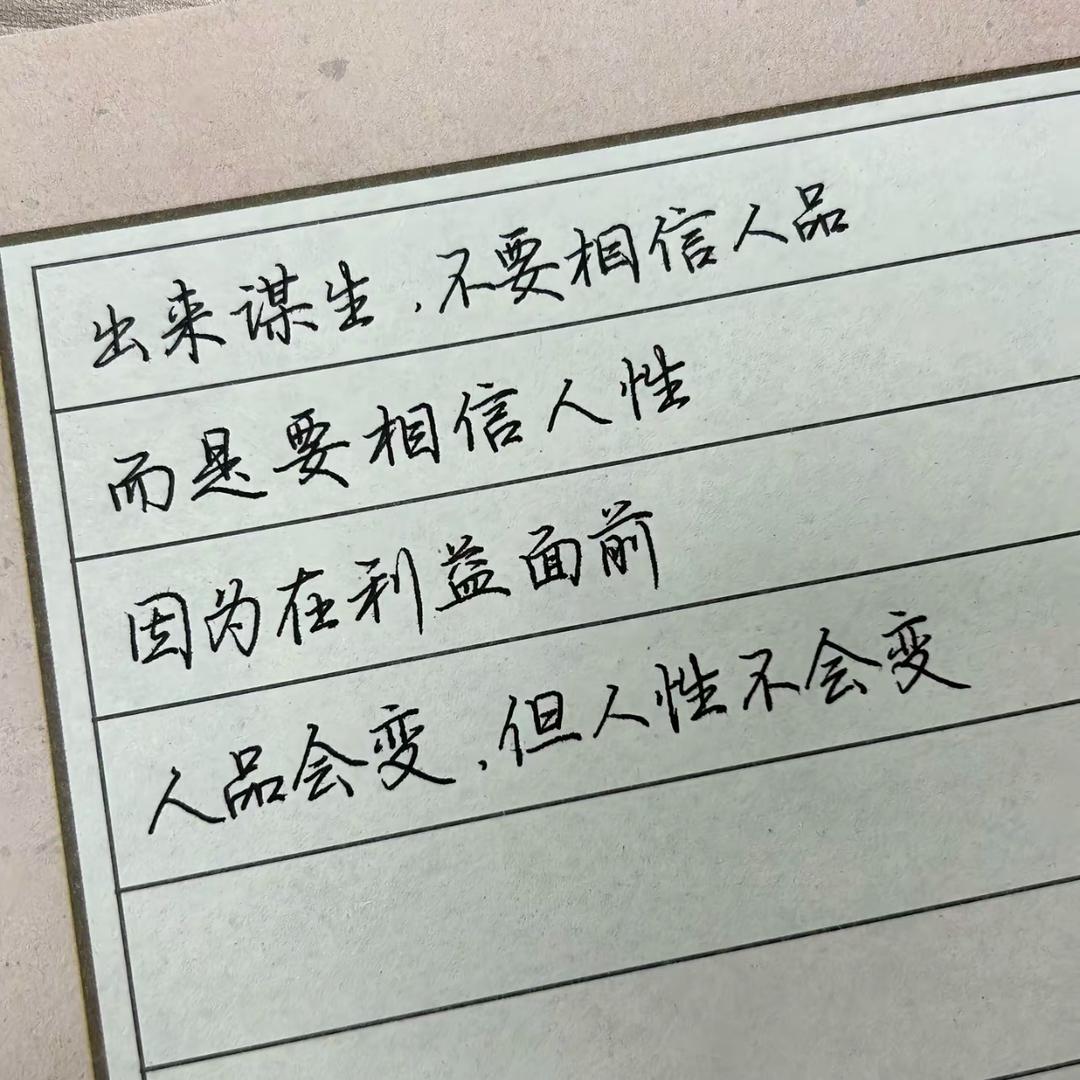 出来谋生,不要相信人品
而是要相信人性
因为在利益面前
人品会变,但人性不会变